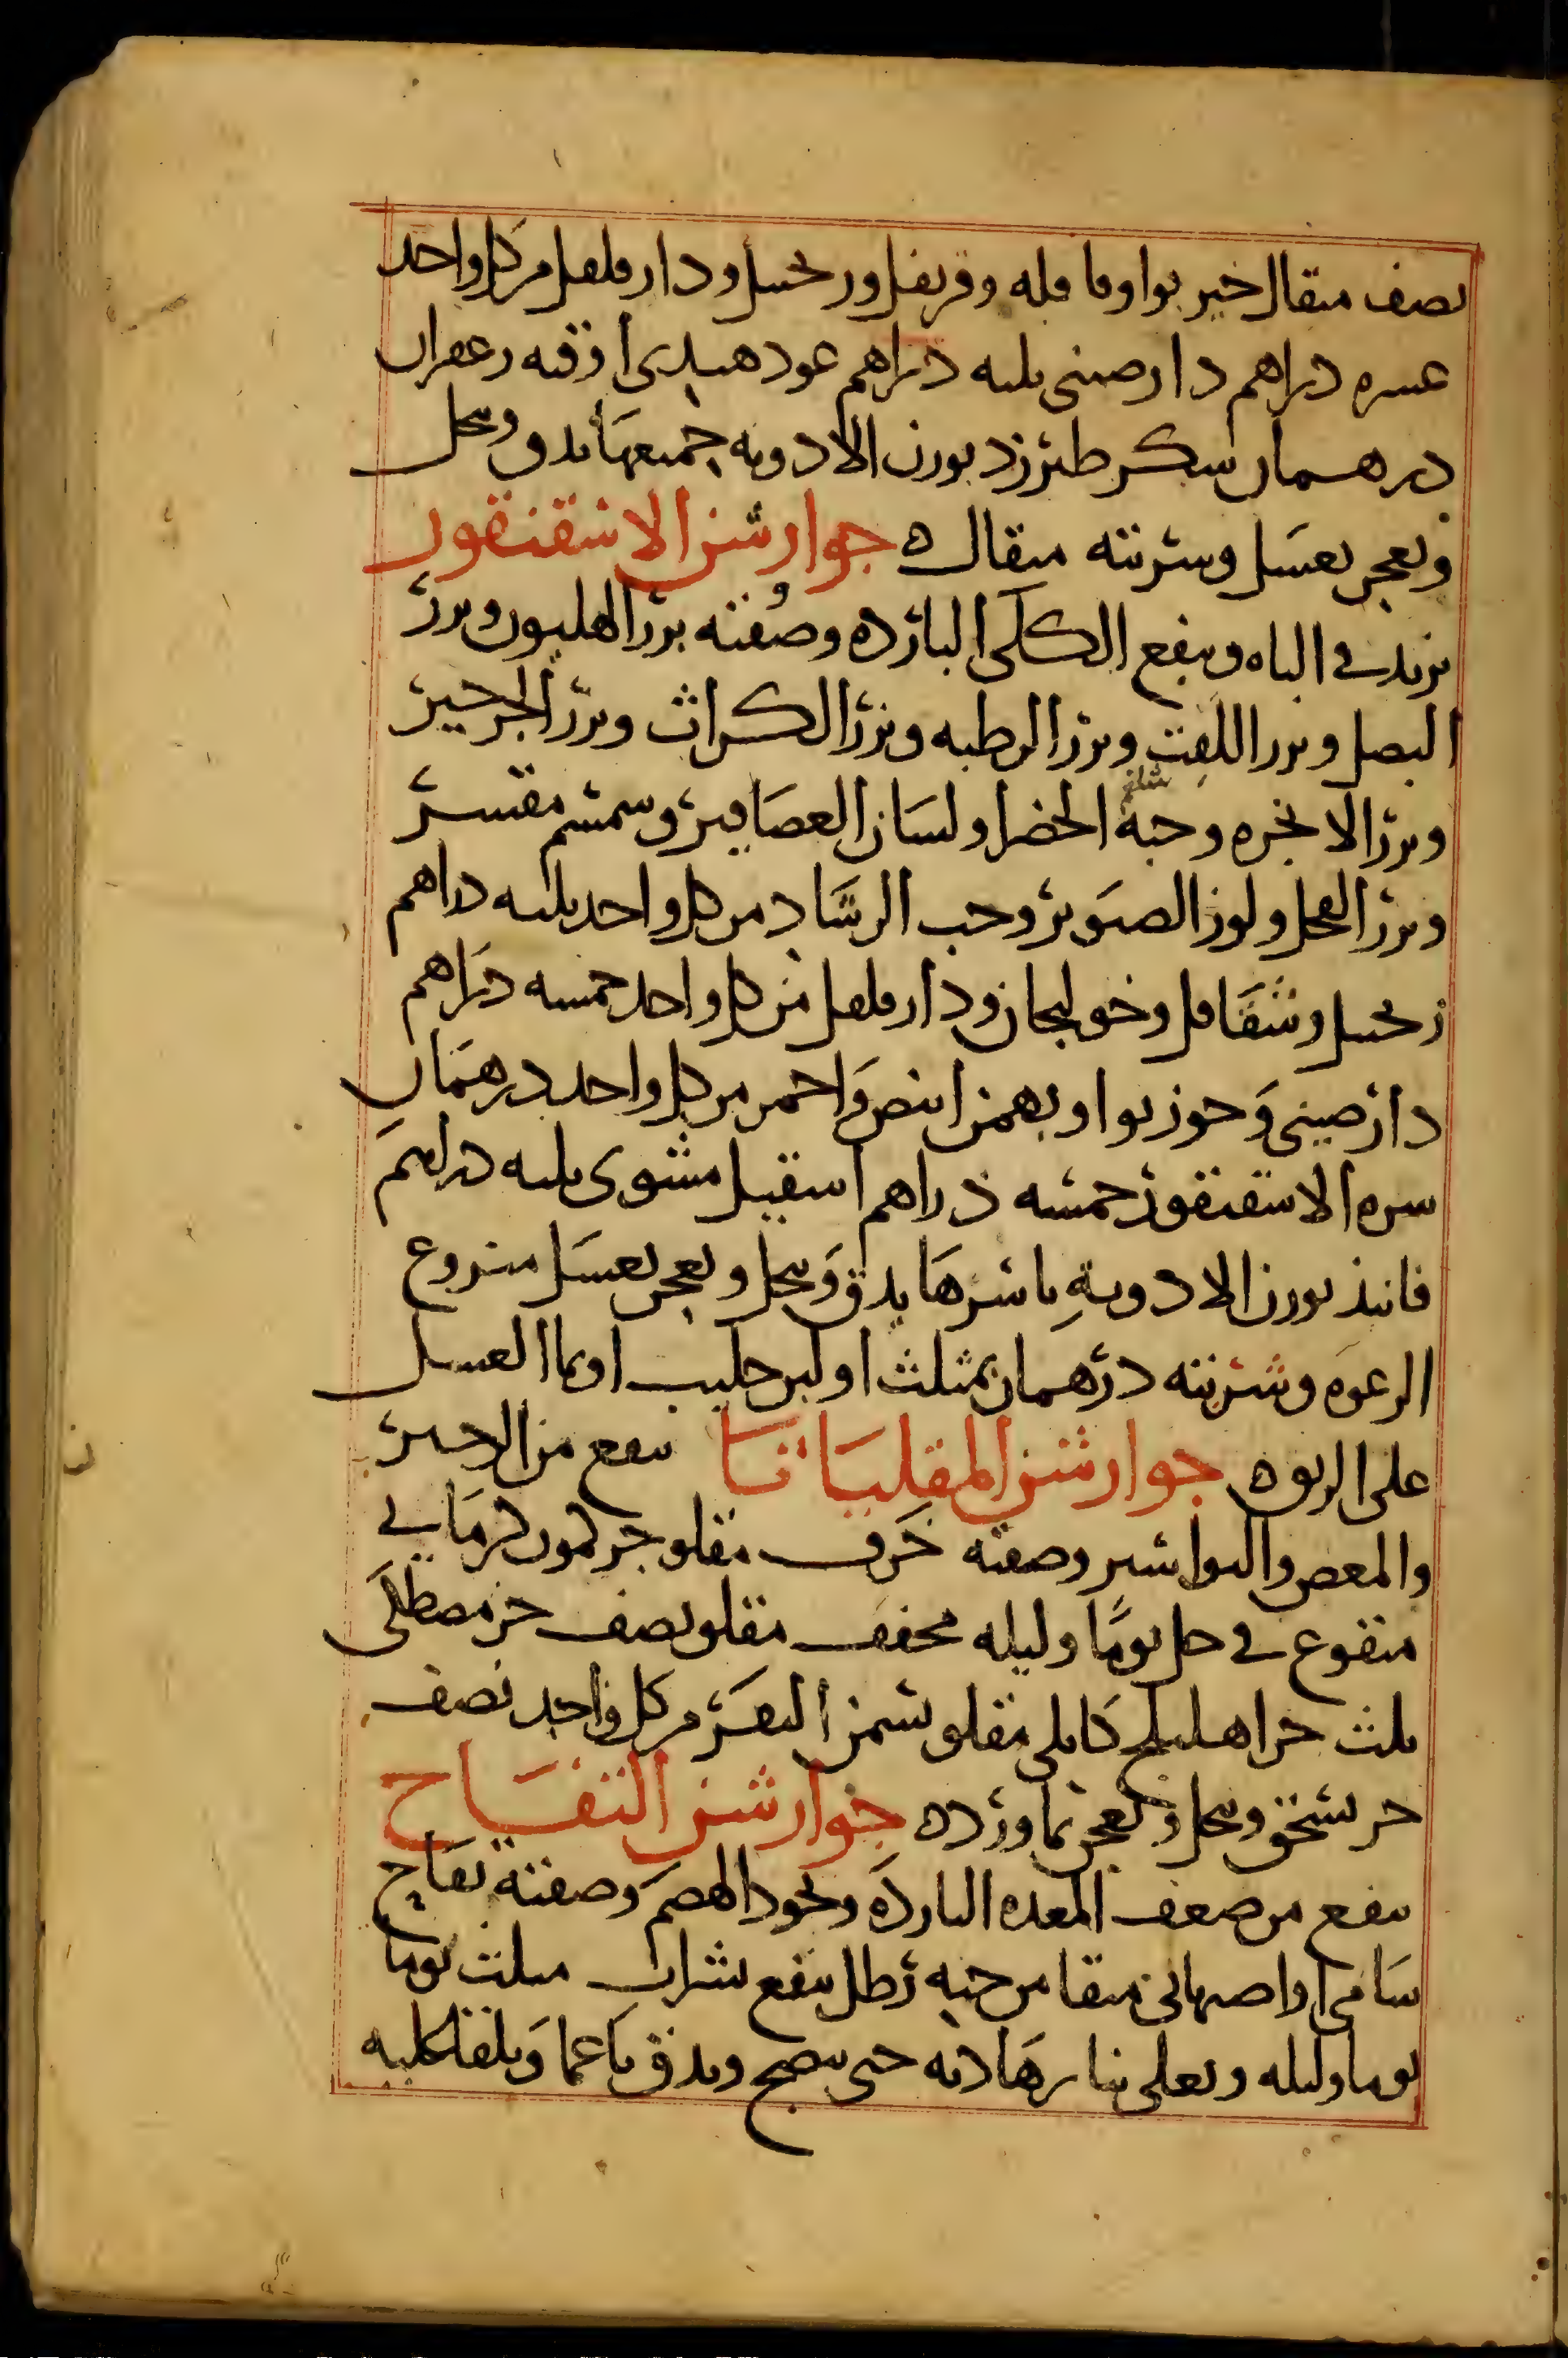 نصف مثقال خير بوا وقاقله وقرنفل وزنجبيل ودارفلفل من كل واحد
عشره دراهم دارصيني ثلثه دراهم عود هندى اوقيه زعفران
درهمان سكر طبرزد بوزن الادويه جميعها يدق وينخل
ويعجن بعسل وشربته مثقال ه جوارشن الاسقنقور
يزيد في الباه وينفع الكلى البارده وصفته بزر الهليون وبزر
البصل وبزر اللفت وبزر الرطبه وبزر الكراث وبزر الجرجير
وبزر الانجره وحبة الخضرا ولسان العصافير وسمسم مقشر
وبزر الفجل ولوز الصنوبر وحب الرشاد من كل واحد ثلثه دراهم
زنجبيل وشقاقل وخولنجان ودارفلفل من كل واحد خمسه دراهم
دارصيني وجوزبوا وبهمن ابيض واحمر من كل واحد درهمان
سره الاسقنقور خمسه دراهم اسقيل مشوى ثلثه دراهم
فانيذ بوزن الادويه باسرها يدق وينخل ويعجن بعسل منزوع
الرغوه وشربته درهمان بمثلث او لبن حليب او بما العسل
على الريق ه جوارشن المقلياثا ينفع من الزحير
والمغص والبواسير وصفته حرف مقلو جز كمون كرماني
منقوع في خل يوما وليله مجفف مقلو نصف جز مصطكى
ثلث جز اهليلج كابلى مقلو بسمن البقر من كل واحد نصف
جز يسحق وينخل ويعجن بماورد ه جوارشن التفاح
ينفع من ضعف المعده البارده ويجود الهضم وصفته تفاح
شامى او اصبهانى منقا من حبه رطل ينقع بشراب مثلث يوما
يوما وليله ويغلى بنار هاديه حتى ينضج ويدق ناعما ويلقا عليه